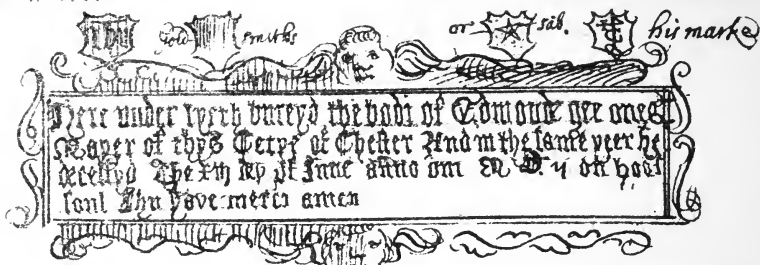 gold smiths or sab. his marke
Here under lyeth bureyd the bodi of Edmond gee
Mayer of thys Cetye of Chester And in the same yeer he
decessyd The of June anno dm M D. on hoos
soul Ihu have merci amen